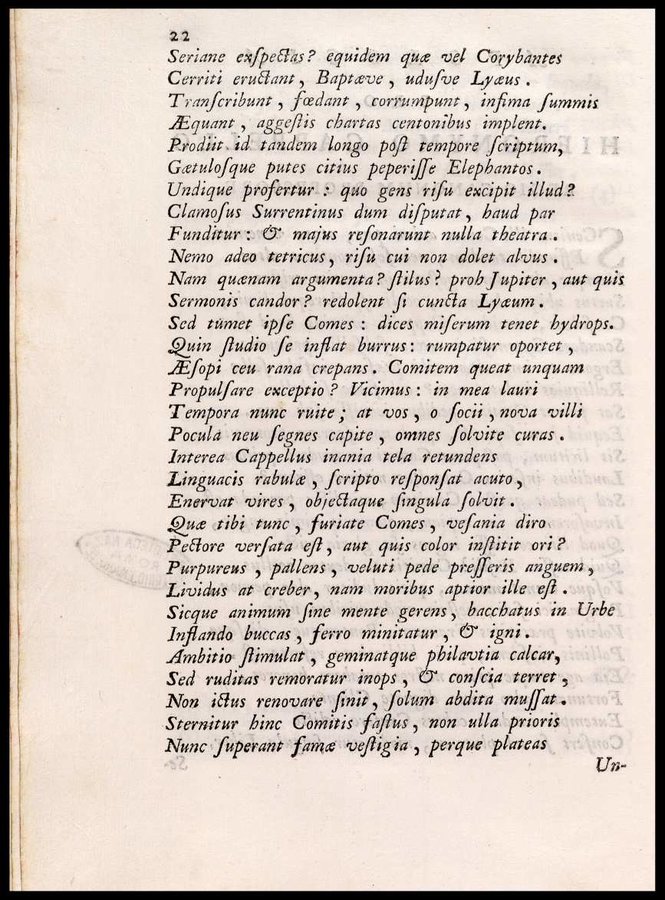 22
Seriane exſpectas? equidem quæ vel Corybantes
Cerriti eructant, Baptæve, uduſve Lyæus.
Tranſcribunt, fœdant, corrumpunt, infima ſummis
Æquant, aggeſtis chartas centonibus implent.
Prodiit id tandem longo poſt tempore ſcriptum,
Gætuloſque putes citius peperiſſe Elephantos.
Undique profertur: quo gens riſu excipit illud?
Clamoſus Surrentinus dum diſputat, haud par
Funditur: & majus reſonarunt nulla theatra.
Nemo adeo tetricus, riſu cui non dolet alvus.
Nam quænam argumenta? ſtilus? proh Jupiter, aut quis
Sermonis candor? redolent ſi cuncta Lyæum.
Sed tumet ipſe Comes: dices miſerum tenet hydrops.
Quin ſtudio ſe inflat burrus: rumpatur oportet,
Æſopi ceu rana crepans. Comitem queat unquam
Propulſare exceptio? Vicimus: in mea lauri
Tempora nunc ruite; at vos, o ſocii, nova villi
Pocula neu ſegnes capite, omnes ſolvite curas.
Interea Cappellus inania tela retundens
Linguacis rabulæ, ſcripto reſponſat acuto,
Enervat vires, objectaque ſingula ſolvit.
Quæ tibi tunc, furiate Comes, veſania diro
Pectore verſata eſt, aut quis color inſtitit ori?
Purpureus, pallens, veluti pede preſſeris anguem,
Lividus at creber, nam moribus aptior ille eſt.
Sicque animum ſine mente gerens, bacchatus in Urbe
Inflando buccas, ferro minitatur, & igni.
Ambitio ſtimulat, geminatque philavtia calcar,
Sed ruditas remoratur inops, & conſcia terret,
Non ictus renovare ſinit, ſolum abdita muſſat.
Sternitur hinc Comitis faſtus, non ulla prioris
Nunc ſuperant famæ veſtigia, perque plateas
Un-